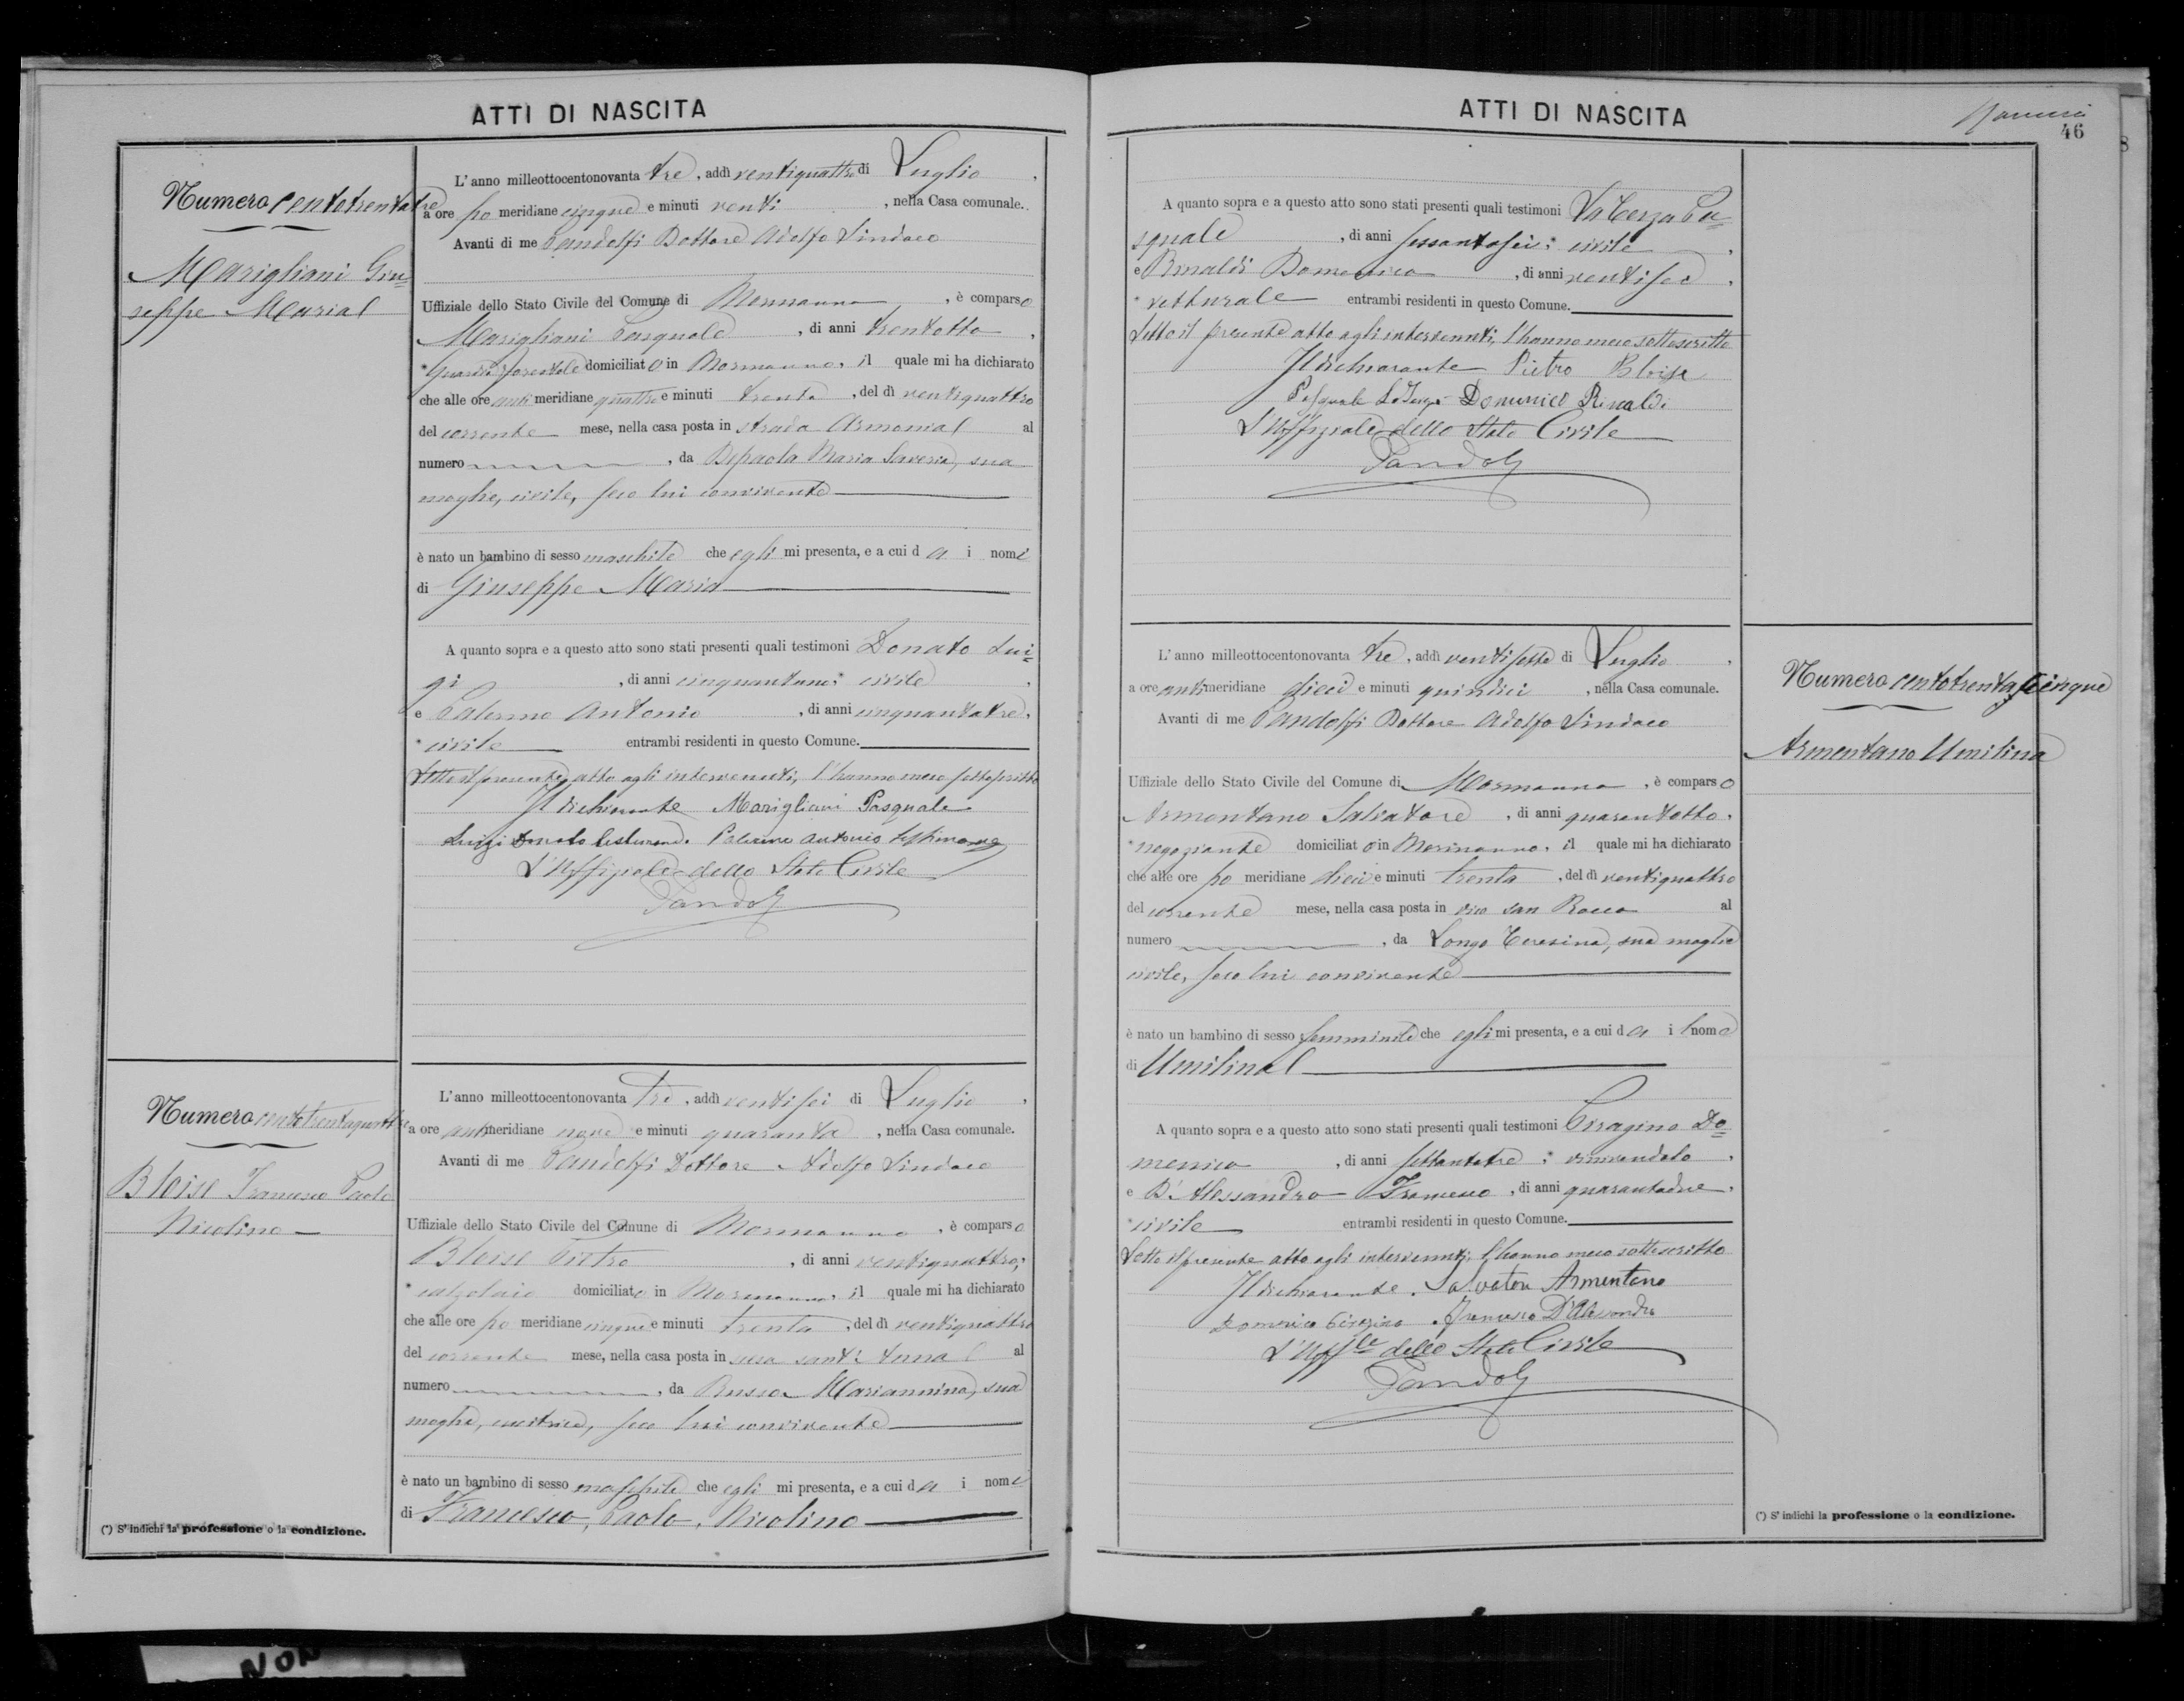 ATTI DI NASCITA
Numero centotrentatre
Marigliani Giu=
seppe Maria
L'anno milleottocentonovanta tre, addì ventiquattro di Luglio,
a ore po meridiane cinque e minuti venti, nella Casa comunale.
Avanti di me Pandolfi Dottore Adolfo Sindaco
Uffiziale dello Stato Civile del Comune di Mormanno, è comparso
Marigliani Pasquale, di anni trentotto,
*Guardia forestale domiciliato in Mormanno, il quale mi ha dichiarato
che alle ore anti meridiane quattro e minuti trenta, del dì ventiquattro
del corrente mese, nella casa posta in strada Armonia al
numero , da Depaola Maria Saveria, sua
moglie, civile, seco lui convivente
è nato un bambino di sesso maschile che egli mi presenta, e a cui da i nomi
di Giuseppe Maria
A quanto sopra e a questo atto sono stati presenti quali testimoni Donato Lui=
gi, di anni cinquantuno, * civile,
e Palermo Antonio, di anni cinquantatre,
*civile entrambi residenti in questo Comune.
Letto il presente atto agli intervenuti, l'hanno meco sottoscritto
Il dichiarante Marigliani Pasquale
Luigi Donato testimone. Palermo Antonio testimone
L'Uffiziale dello Stato Civile
Pandolfi
Numero centotrentaquattro
Bloise Francesco Paolo
Nicolino
L'anno milleottocentonovanta tre, addì ventisei di Luglio,
a ore antimeridiane nove e minuti quaranta, nella Casa comunale.
Avanti di me Pandolfi Dottore Adolfo Sindaco
Uffiziale dello Stato Civile del Comune di Mormanno, è comparso
Bloise Pietro, di anni ventiquattro,
*calzolaio domiciliato in Mormanno, il quale mi ha dichiarato
che alle ore po meridiane cinque e minuti trenta, del dì ventiquattro
del corrente mese, nella casa posta in sant'Anna al
numero , da Russo Mariannina, sua
moglie, cucitrice, seco lui convivente
è nato un bambino di sesso maschile che egli mi presenta, e a cui da i nomi
di Francesco, Paolo, Nicolino
(*) S'indichi la professione o la condizione.
ATTI DI NASCITA
46
A quanto sopra e a questo atto sono stati presenti quali testimoni La Terza Pa=
squale, di anni sessantasei, * civile,
e Rinaldi Domenico, di anni ventisei,
*vetturale entrambi residenti in questo Comune.
Letto il presente atto agli intervenuti, l'hanno meco sottoscritto
Il dichiarante Pietro Bloise
Pasquale La Terza Domenico Rinaldi
L'Uffiziale dello Stato Civile
Pandolfi
L'anno milleottocentonovanta tre, addì ventisette di Luglio,
a ore antimeridiane dieci e minuti quindici, nella Casa comunale.
Avanti di me Pandolfi Dottore Adolfo Sindaco
Uffiziale dello Stato Civile del Comune di Mormanno, è comparso
Armentano Salvatore, di anni quarantotto,
*negoziante domiciliato in Mormanno, il quale mi ha dichiarato
che alle ore po meridiane dieci e minuti trenta, del dì ventiquattro
del corrente mese, nella casa posta in vico san Rocco al
numero , da Longo Teresina, sua moglie
civile, seco lui convivente
è nato un bambino di sesso femminile che egli mi presenta, e a cui da il nome
di Umilina
A quanto sopra e a questo atto sono stati presenti quali testimoni Do=
menico, di anni settantatre, *
e D'Alessandro Francesco, di anni quarantadue,
*civile entrambi residenti in questo Comune.
Letto il presente atto agli intervenuti, l'hanno meco sottoscritto
Il dichiarante. Salvatore Armentano
Domenico Francesco D'Alessandro
L'Uff.le dello Stato Civile
Pandolfi
Numero centotrentacinque
Armentano Umilina
(*) S'indichi la professione o la condizione.
NON